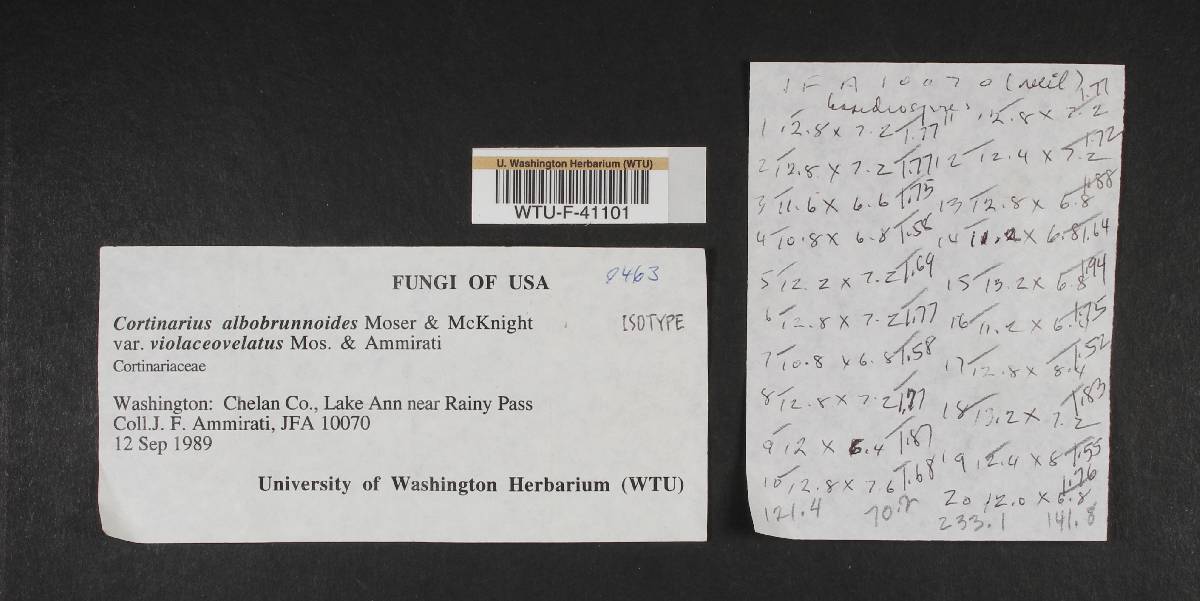 U. Washington Herbarium (WTU)
WTU-F-41101
FUNGI OF USA 9463
Cortinarius albobrunnoides Moser & McKnight ISOTYPE
var. violaceovelatus Mos. & Ammirati
Cortinariaceae
Washington: Chelan Co., Lake Ann near Rainy Pass
Coll.J. F. Ammirati, JFA 10070
12 Sep 1989
University of Washington Herbarium (WTU)
JFA 10070 (veil)
basidiospores
1 12.8 x 7.2 1.77 11 12.8 x 7.2 1.77
2 12.8 x 7.2 1.77 12 12.4 x 7.2 1.72
3 11.6 x 6.6 1.75 13 12.8 x 6.8 1.88
4 10.8 x 6.8 1.58 14 11.2 x 6.8 1.64
5 12.2 x 7.2 1.69 15 13.2 x 6.8 1.94
6 12.8 x 7.2 1.77 16 11.2 x 1.75
7 10.8 x 6.8 1.58 17 12.8 x 8.4 1.52
8 12.8 x 7.2 1.77 18 13.2 x 7.2 1.83
9 12 x 6.4 1.87 19 12.4 x 8 1.55
10 12.8 x 7.6 1.68 20 12.0 x 6.8 1.76
121.4 70.2 233.1 141.8